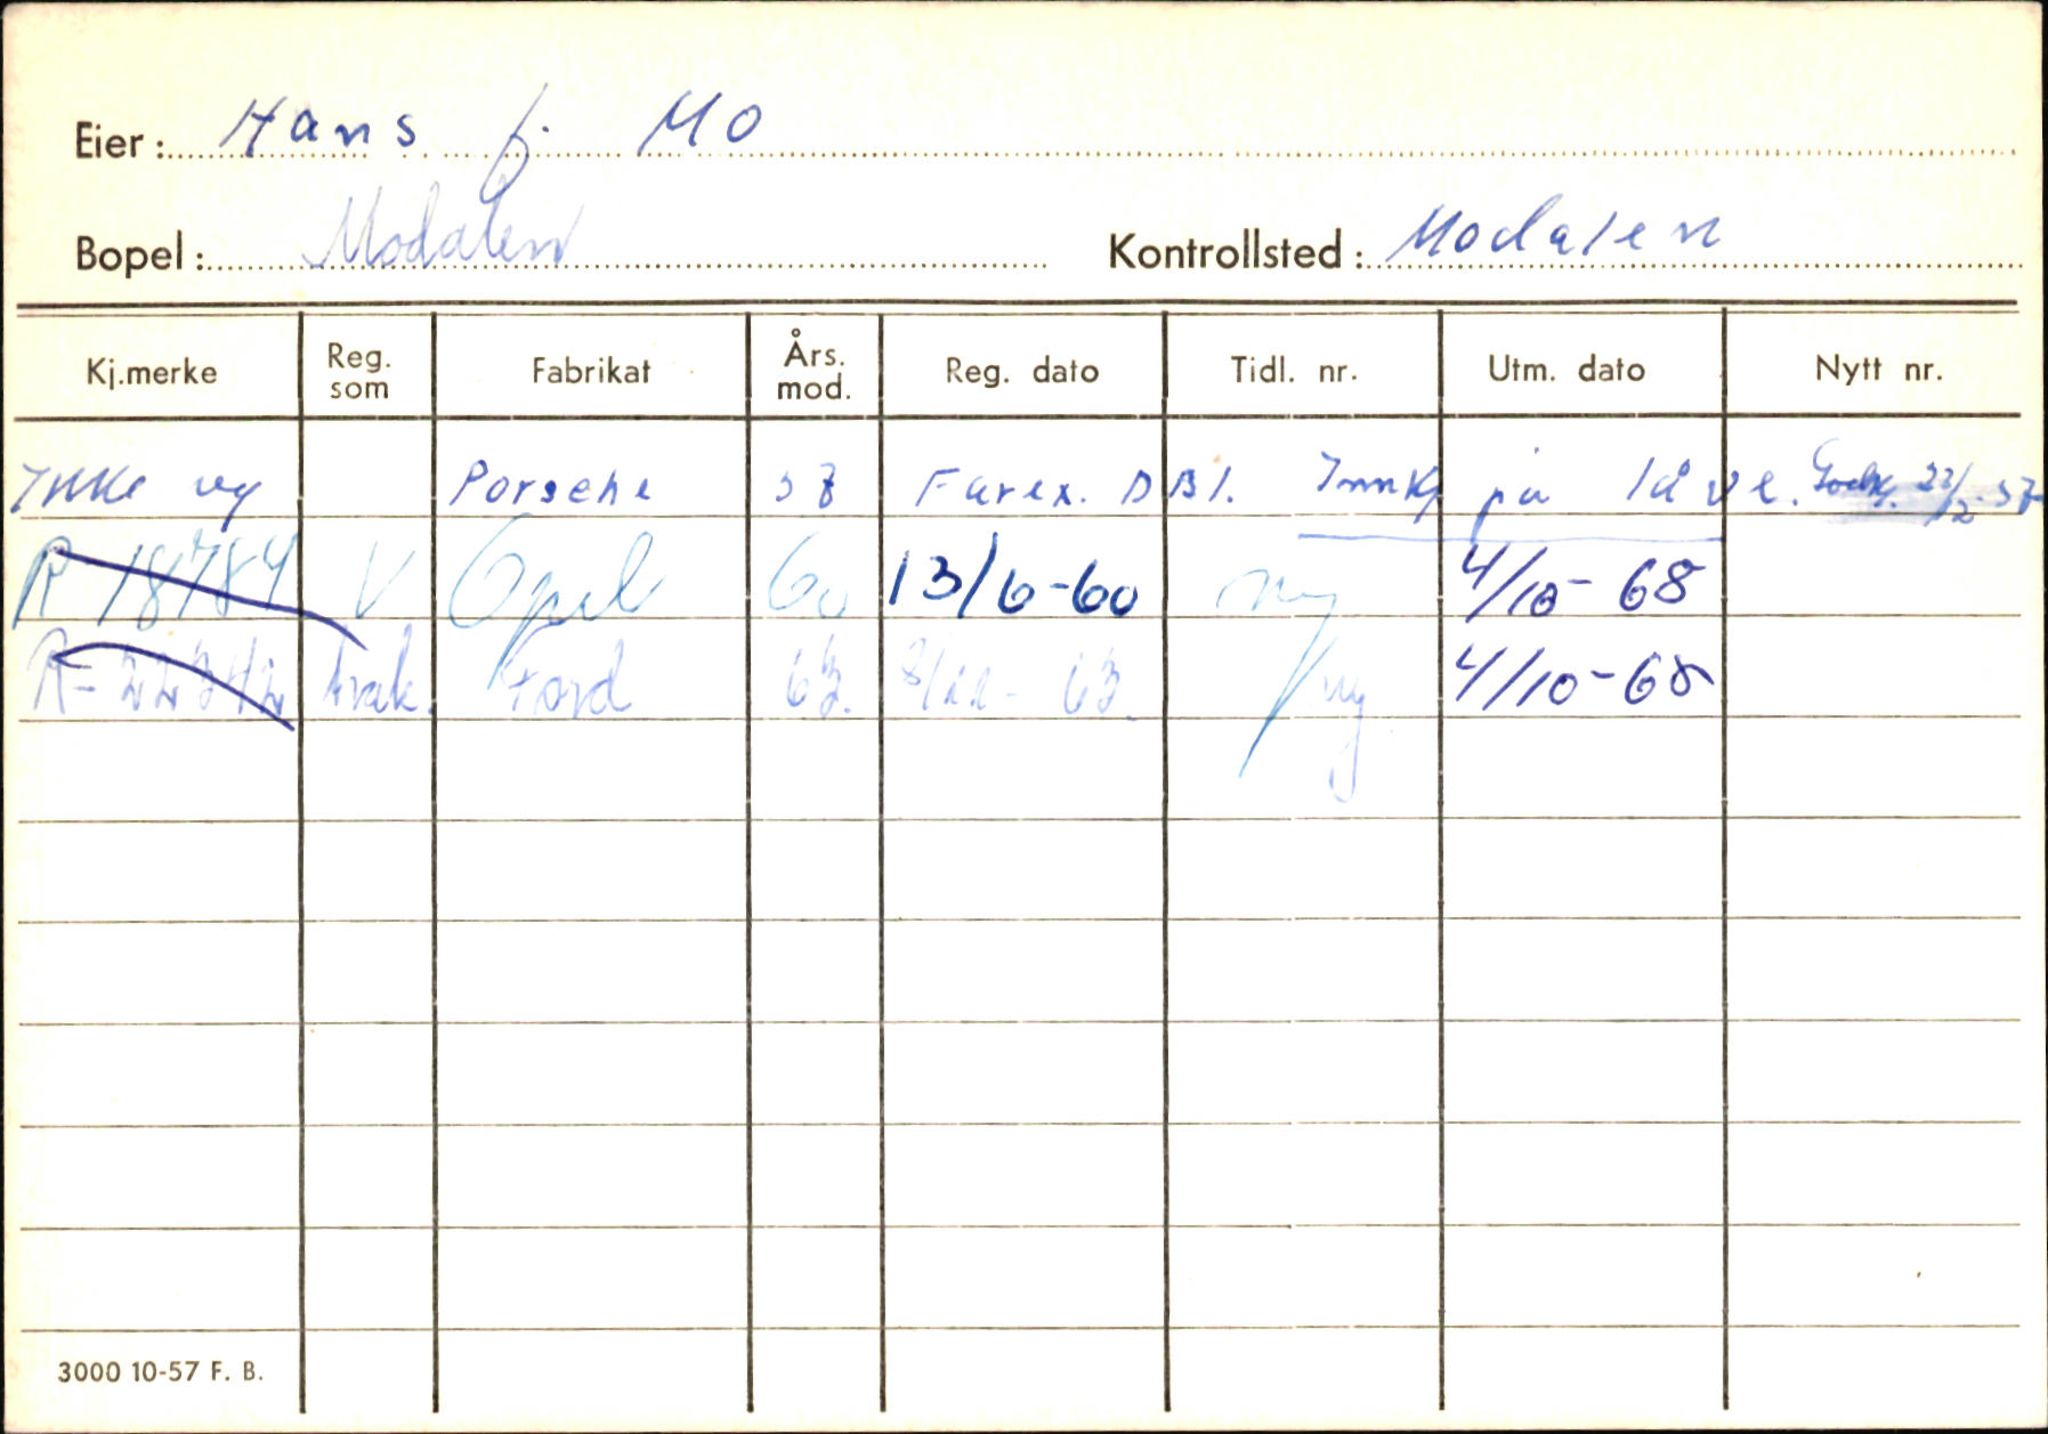 Eier: Hans J. Mo
Bopel: Modalen Kontrollsted: Modalen
Kj.merke Reg. som Fabrikat Års. mod. Reg. dato Tidl. nr. Utm. dato Nytt nr.
Ikke reg Porsche 57 Farex. DBl. Innkj på låve. Godkj. 22/2-57
R 18784 V Opel 60 13/6-60 ny 4/10-68
R-22242 trak. Ford 63. 8/11-63. ny 4/10-68
3000 10-57 F. B.